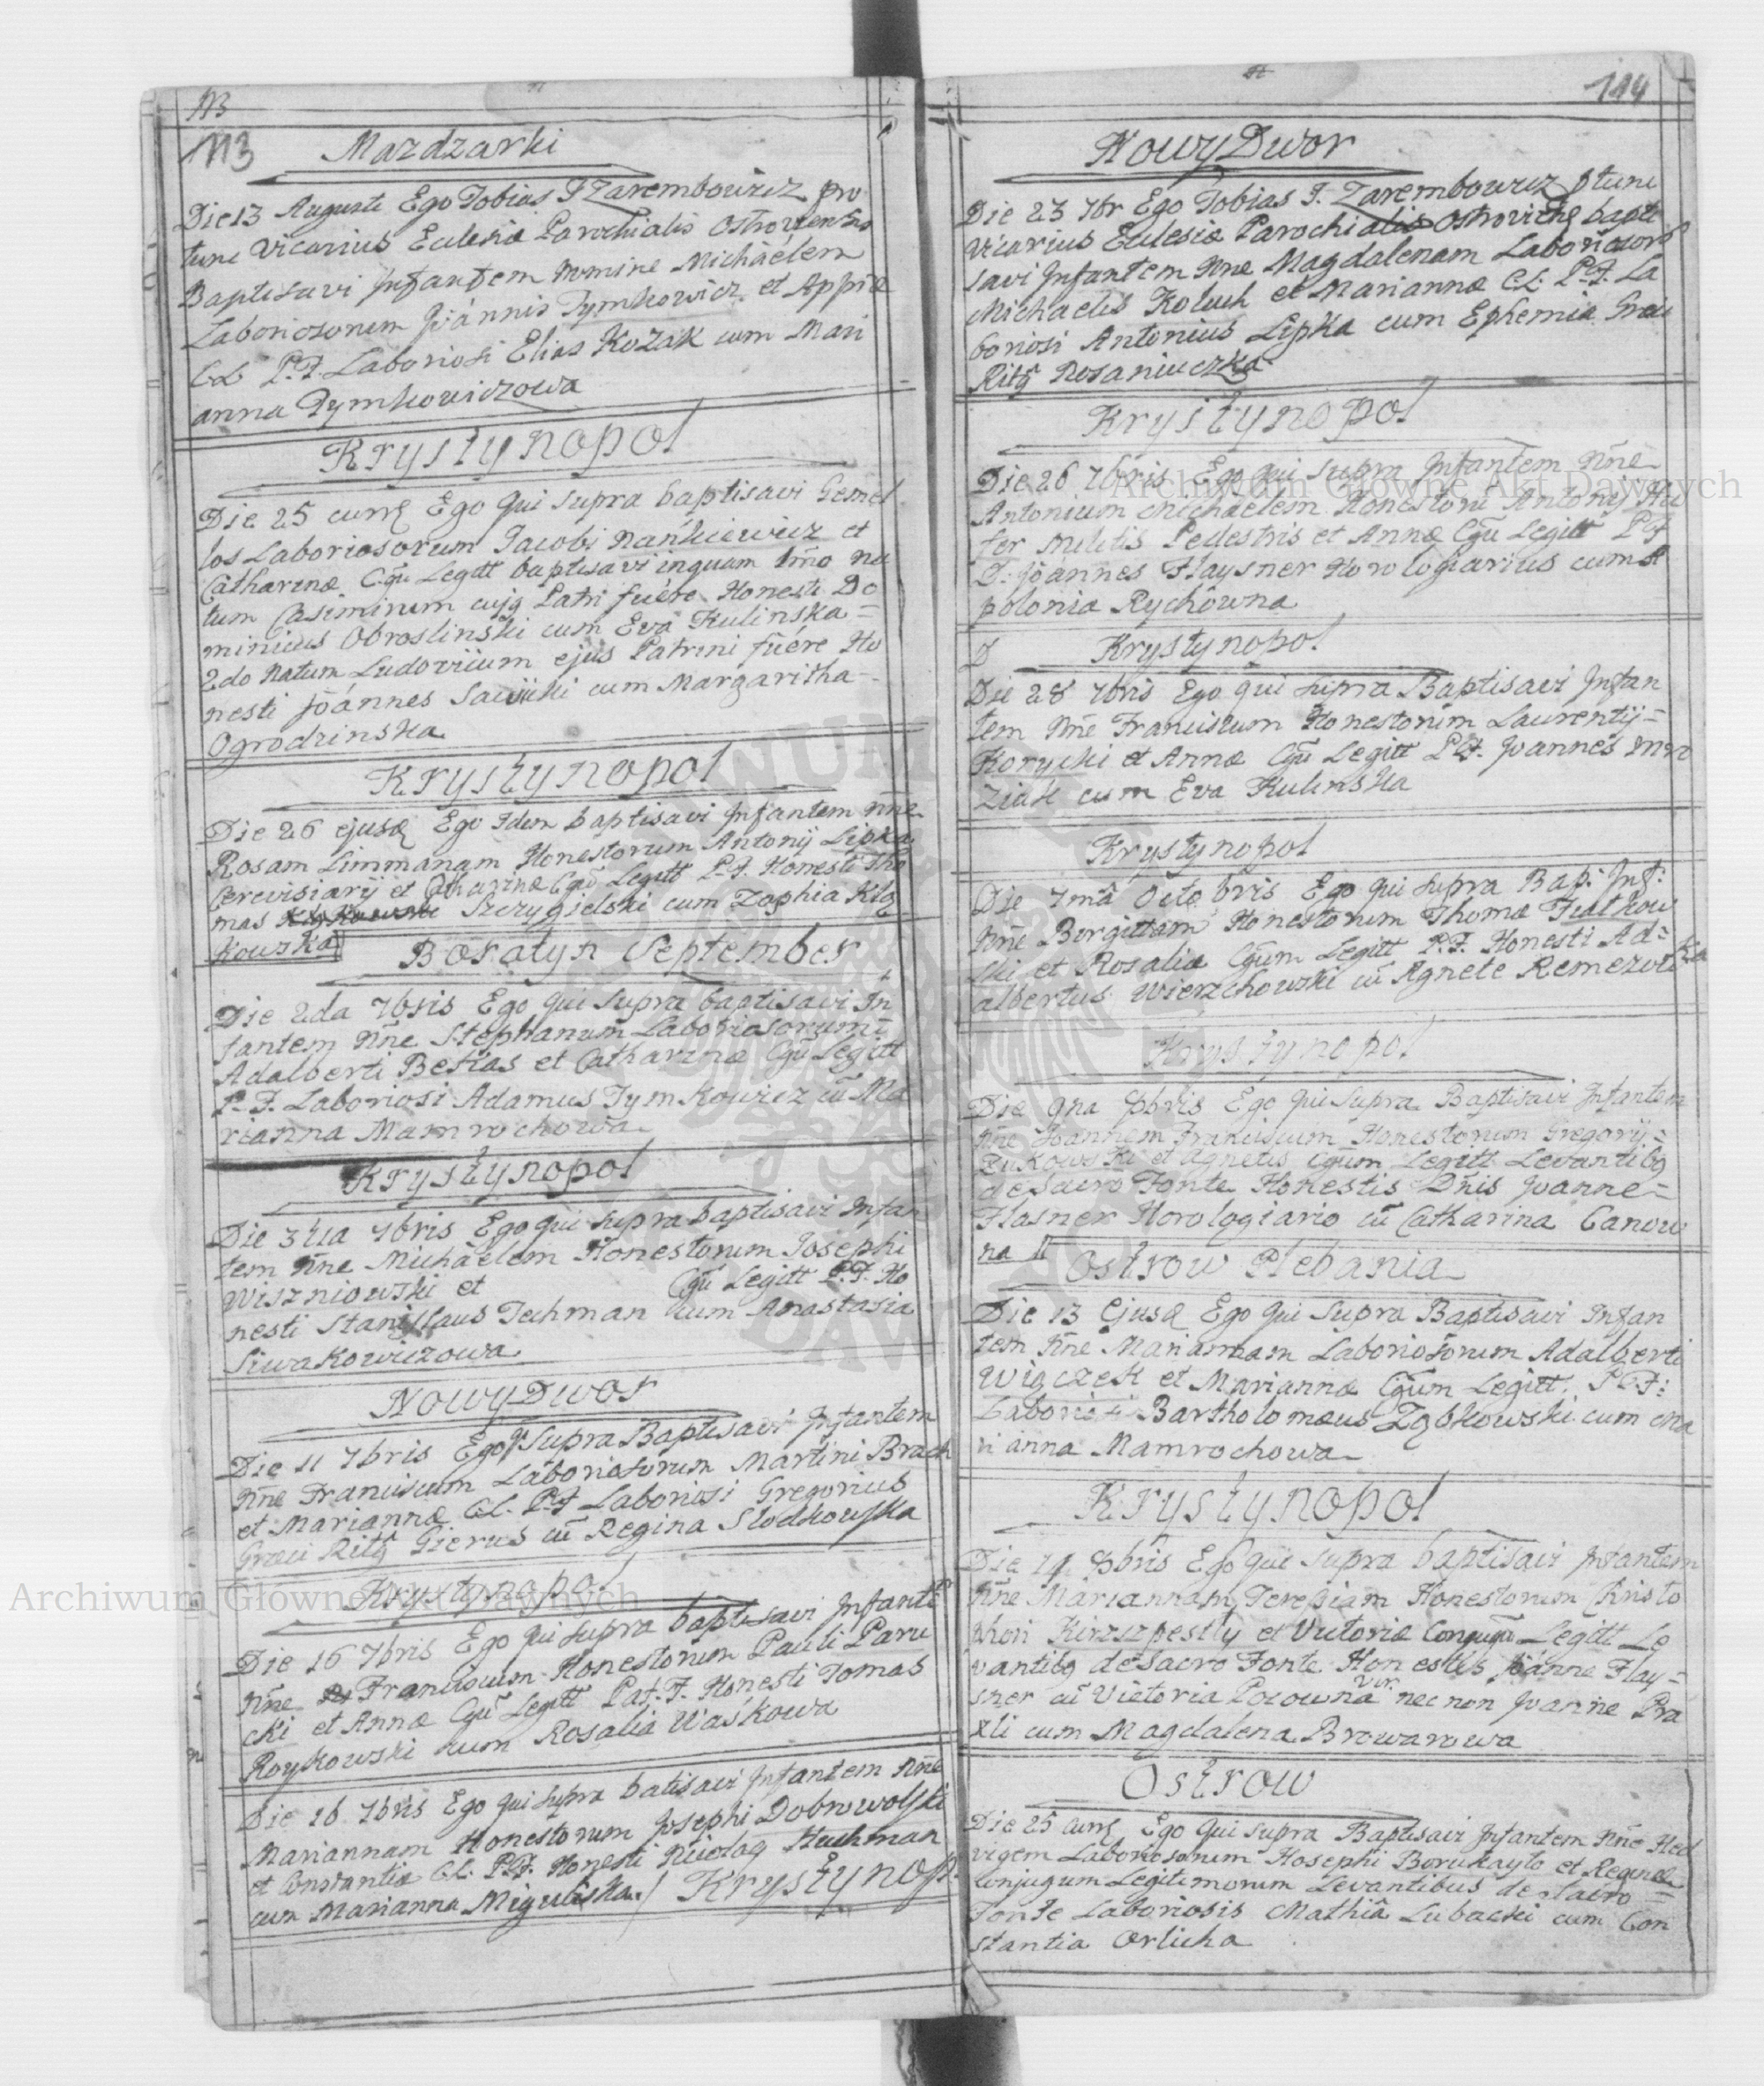 113
113 Mazdzarki
Die 13 Augusti Ego Tobias J Zarembowicz pro
tunc Vicarius Ecclesiæ Parochialis Ostroviensis
Baptisavi Infantem nomine Michaëlem
Laboriosorum Joánnis Tymkowicz et Appiæ
C L P.P. Laboriosi Elias Kozak cum Mari
anna Tymkowiczowa
Krystynopol
Die 25 curr Ego Qui supra baptisavi Gemel
los Laboriosorum Jacobi Nańkiewicz et
Catharinæ Cgū Legitt baptisavi inquam 1mo na
tum Casimirum cujq Patri fuére Honesti Do
minicus Obroslinski cum Eva Kulinska =
2do Natum Ludovicum ejus Patrini fuére Ho
nesti Joánnes Sawicki cum Margaritha -
Ogrodzinska
Krystynopol
Die 26 ejusq Ego Idem baptisavi Infantem Nn̄e
Rosam Limmanam Honestorum Antonij Lipka
Cerevisiarij et Catharinæ Cgū Legitt P.P. Honesti Tho
mas Szczygielski cum Zophia Klq
kowska
Boratyn September
Die 2da 7bris Ego qui supra baptisavi In
fantem Nn̄e Stephanum Laboriosorum
Adalberti Betlas et Catharinæ Cgū Legitt
P.P. Laboriosi Adamus Tymkowicz cū Ma
rianna Mamrochowa
Krystynopol
Die 3tia 7bris Ego qui supra baptisavi Infan
tem Nn̄e Michaëlem Honestorum Josephi
Wiszniowski et Cgū Legitt P.P. Ho
nesti Stanislaus Techman cum Anastasia
Siwakowiczowa
Nowy Dwor
Die 11 7bris Ego q Supra Baptisavi Infantem
Nn̄e Franciscum Laboriosorum Martini Brach
et Mariannæ C.L. P.P. Laboriosi Gregorius
Græci Ritq Gierus cū Regina Slodkowska
Krystynopol
Die 16 7bris Ego qui supra baptisavi Infantē
Nn̄e Franciscum Honestorum Pauli Paru
cki et Annæ Cgū Legitt Pat.P. Honesti Tomas
Roykowski cum Rosalia Waśkowa
Die 16 7bris Ego qui supra batisavi Infantem Nn̄e
Mariannam Honestorum Josephi Dobrowolski
et Constantiæ C.L. P.P. Honesti Nicolaq Stechman
cum Marianna Migulska. / Krystynop.
114
Nowy Dwor
Die 23 7br Ego Tobias J. Zarembowicz ptunc
Vicarius Ecclesiæ Parochialis Ostrovien bapti
savi Infantem Nne Magdalenam Laboriosor
Michaelis Koluch et Mariannæ C.L. P.P. La
boriosi Antonius Lipka cum Ephemia Græci
Ritq Rosaniuczka
Krystynopol
Die 26 7bris Ego qui supra Infantem Nn̄e
Antonium Michaëlem Honestorū Antonij Hu
fer Militis Pedestris et Annæ Cgū Legitt P.P.
D: Joannes Flaysner Horologiarius cum A
polonia Rychówna
D Krystynopol
Die 28 7bris Ego qui supra Baptisavi Infan
tem Nn̄e Franciscum Honestorum Laurentij =
Korycki et Annæ Cgū Legitt P.P. Joannes Mro
ziak cum Eva Kulinska
Krystynopol
Die 7mâ Octobris Ego qui supra Bap: Inf:
Nn̄e Birgittam Honestorum Thomæ Fiałkow
ski et Rosaliæ Cgūm Legitt P.P. Honesti Ad=
albertus Wierzchowski cū Agnete Remezow ka
Krystynopol
Die 9na 8bris Ego qui Supra Baptisavi Infantem
Nn̄e Joannem Franciscum Honestorum Gregorij =
Dukowski et Agnetis Cgūm Legitt Levantibq
de Sacro Fonte Honestis Dn̄is Joanne =
Flasner Horologiario cū Catharina Canow
na
Ostrow Plebania
Die 13 Ejusq Ego Qui Supra Baptisavi Infan
tem Nn̄e Mariannam Laboriosorum Adalberti
Wiqczek et Mariannæ Cgūm Legitt. P.P:
Laboriosi Bartholomæus Zqbkowski cum Ma
rianna Mamrochowa
Krystynopol
Die 19 8bris Ego qui supra baptisavi Infantem
Nn̄e Mariannam Teresiam Honestorum Christo
phori Kirzszpestty et Victoriæ Conjugū Legitt Le
vantibq de Sacro Fonte Honestis Joánne Flay =
sner cū Victoria Pocowna Vir. nec non Joanne Pra
xli cum Magdalena Browarowa
Ostrow
Die 25 curr Ego Qui supra Baptisavi Infantem Nn̄e Hed
vigem Laboriosorum Hosephi Borukayło et Reginæ
Conjugum Legitimorum Levantibus de Sacro =
Fonte Laboriosis Mathiâ Lubacki cum Con
stantia Orlicka
Archiwum Główne Akt Dawnych
Archiwum Główne Akt Dawnych